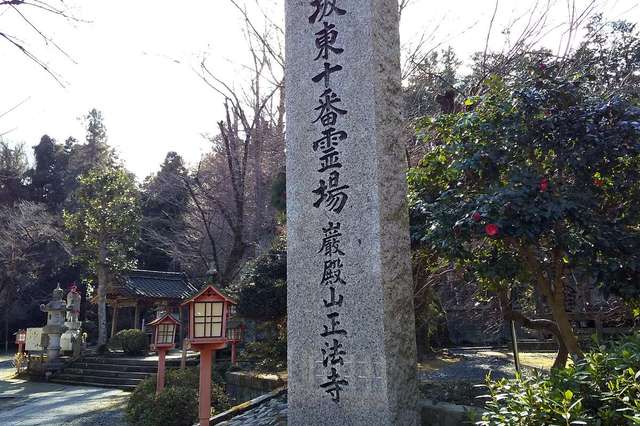 坂東十番霊場 巖殿山正法寺